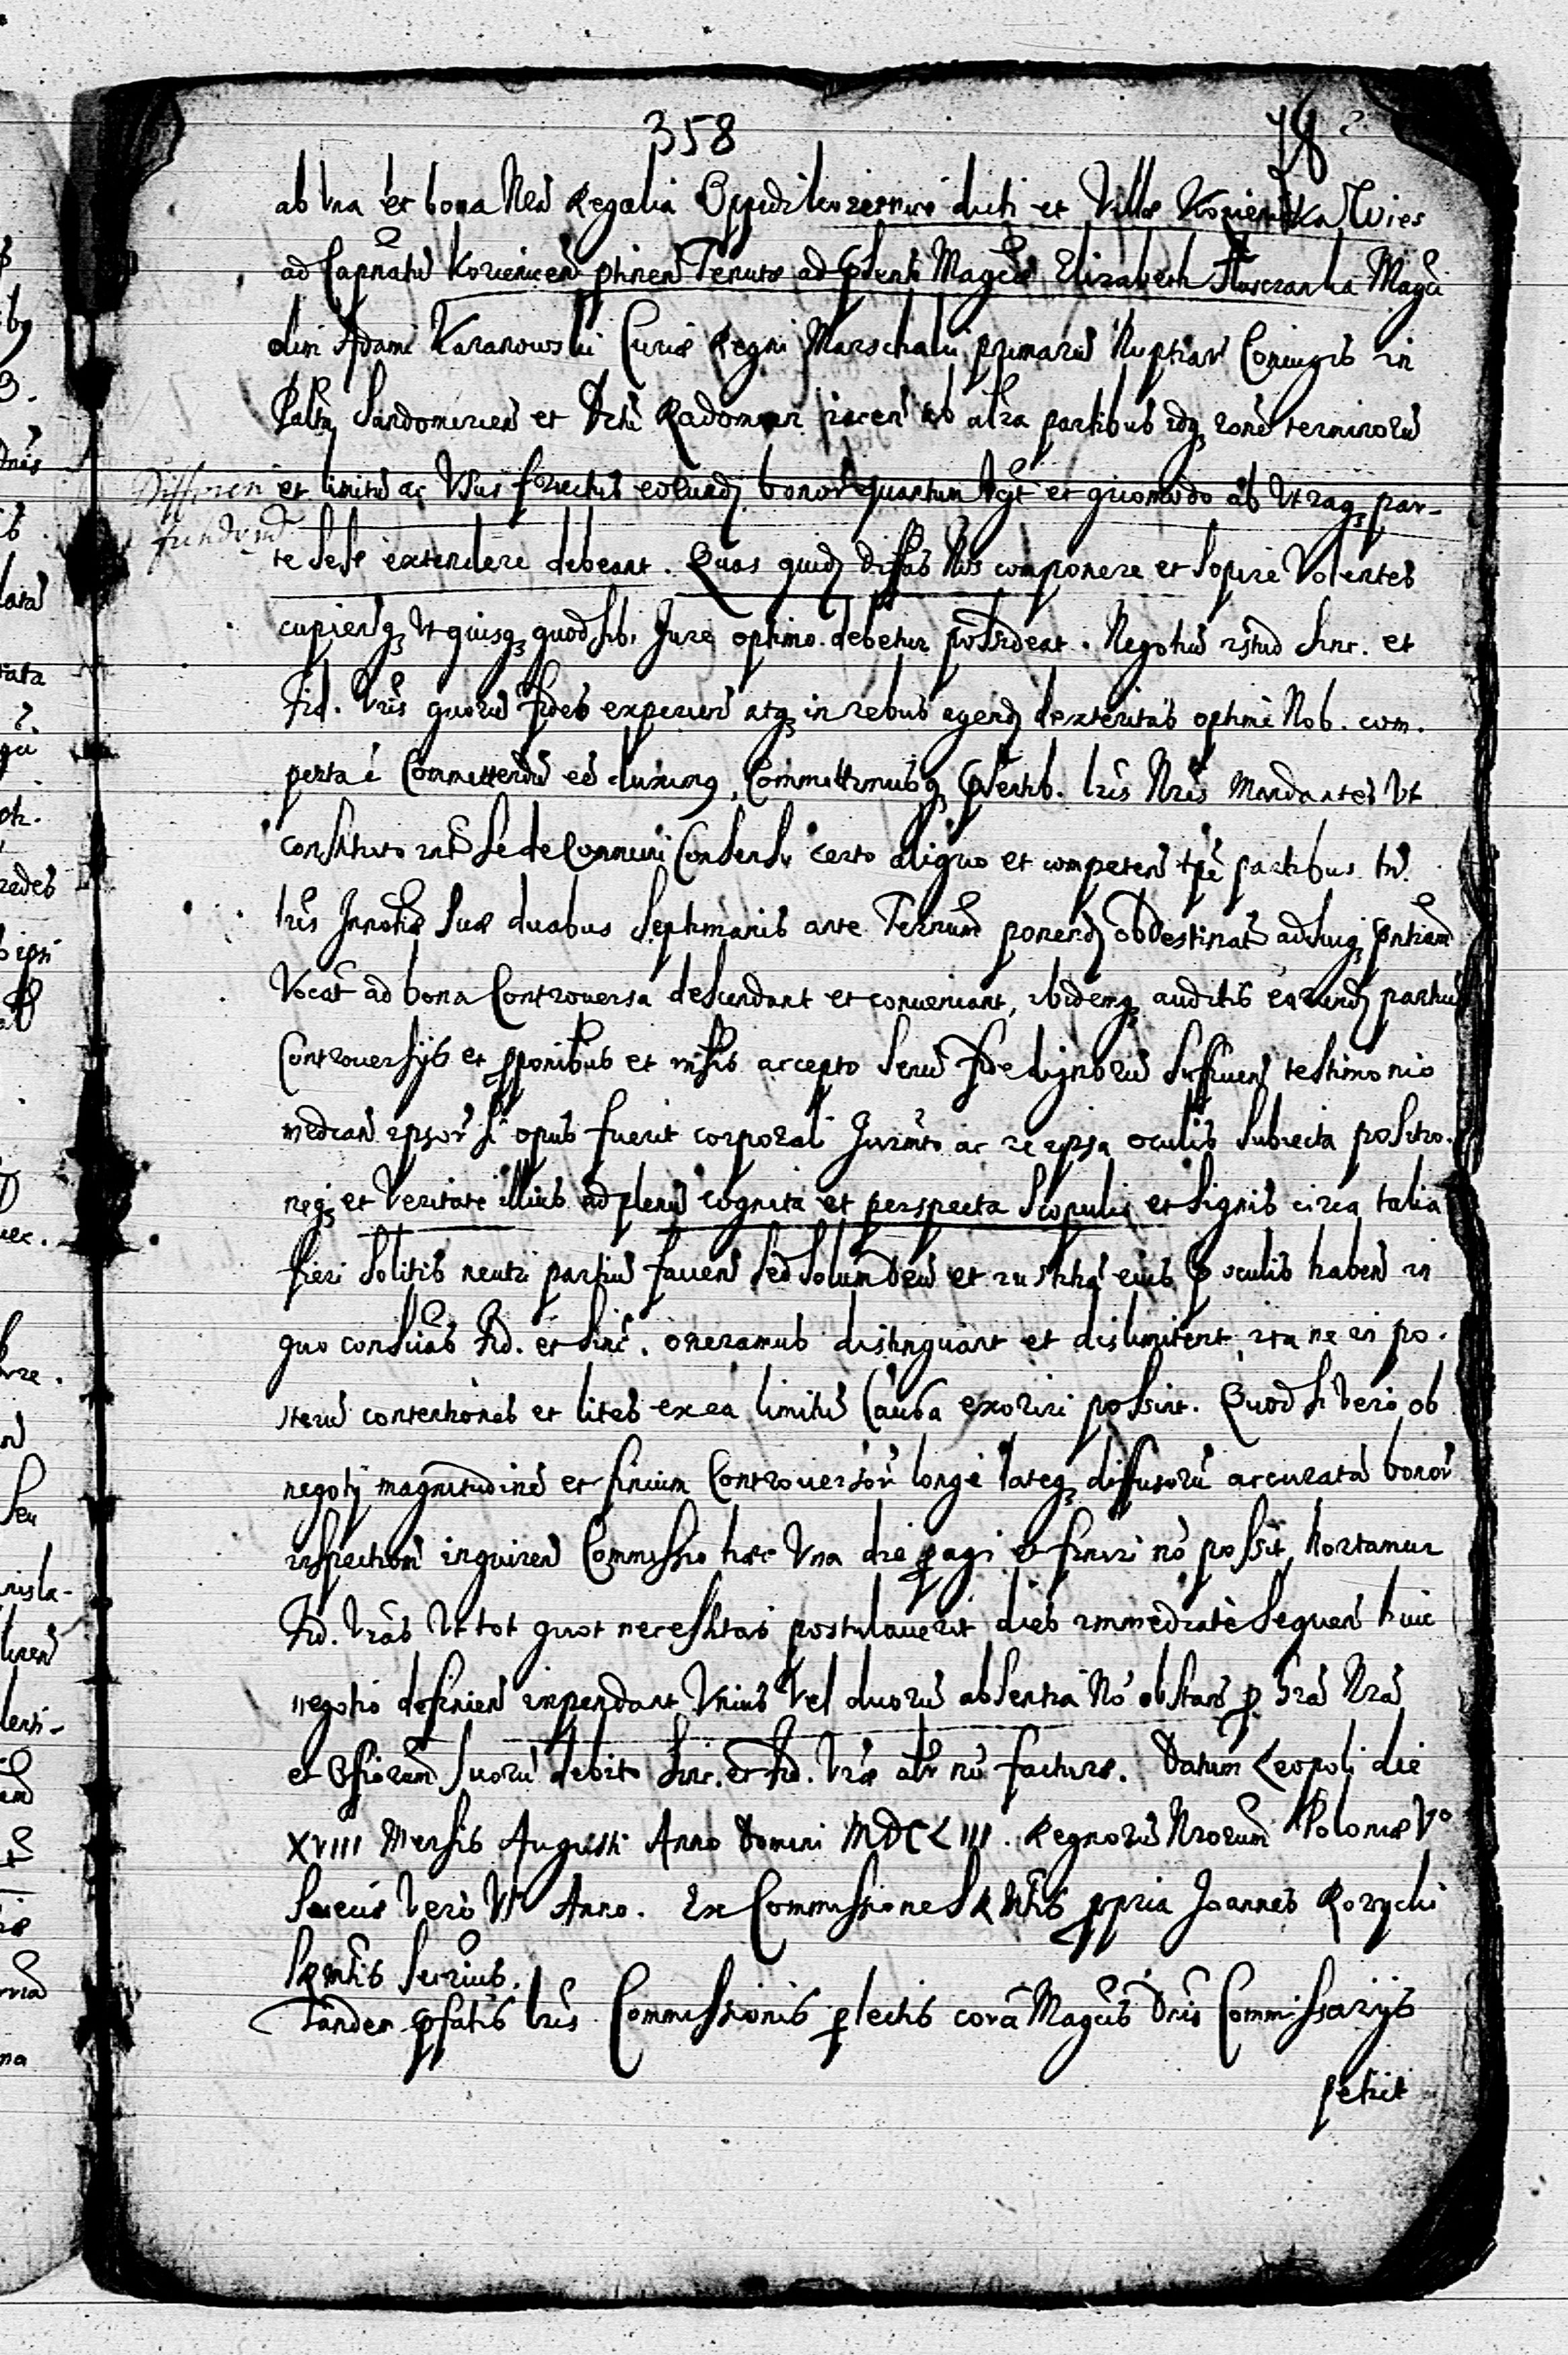 358
78
ab una et bona Nra Regalia Oppidi Kozienice dicti et Villæ Kozienicka Wies
ad Capnatū Koziencen ptinen Tenutæ ad Psenti Magcæ Elizabeth Słuszanka Magci
olim Adami Kazanowski Curiæ Regni Marschalci primarū Nuptiar Coniugis in
Paltu Sandomirien et Drtu Radomien iacen ab altra partibus idq rone terminorū
Differen fundorum
et limitū ac Usus fructus eorund bonor quantum Agt et quomodo ab Utraq par-
te sese extendere debeant. Quas quid Diffas Nos componere et sopire Volentes
cupienq Ut quisq quod sibi Jure optimo debetur possideat. Negotiū istud Sinc. et
Fid. Vris quorū fides experien atq in rebus agend dexteritas optime Nob. com.
perta e Committendū eē duximq, Committimusq Psentib. lris Nris Mandantes Ut
constituto int se de Communi Consensu certo aliquo et competen tpe partibus tn
lris Innotiæ Suæ duabus Septimanis ante Terminum ponend obdestinat adsuiq Pntiam
Vocat ad bona Controversa descendant et conveniant, ibidemq auditis earund partiū
Controversijs et Pponibus et visis accepto Senū fide dignorū sufficien testimonio
median ipsor si opus fuerit corporali Juramto ac re ipsa oculis subiecta positio.
neq et Veritate illius ad plenū cognita et perspecta Scopulis et Signis circa talia
fieri solitis neutri partiū faven sed solum Deū et iustitia eius P oculis haben in
quo conscias Fid. et Sinc. oneramus distinguant et dislimitent, ita ne in po.
sterū contentiones et lites ex ea limitū Causa exoriri possint. Quod si Vero ob
negotij magnitudine et finium Controversor longe lateq diffusorū accurata bonor
inspection inquiren Commissio hæc Una die pagi et finiri nō possit, hortamur
Fid. Vras Ut tot quot necessitas postulaverit dies immediate sequen huic
negotio definien impendant Unius Vel duorū absentia Nō obstan p gra Nra
et Officiorum suorū debito Sinc. et Fid. Vræ alr nō facturæ. Datum Leopoli die
XVIII Mensis Augusti Anno Domini MDCLIII. Regnorū Nrorum Poloniæ Vo
Sueciæ Vero VI Anno. Ex Commissione S R Mtis ppria Joannes Rozycki
S R Mtis Secrius.
Tandem Pfatis lris Commissionis plectis corā Magcis Dnis Commissarijs
petiit